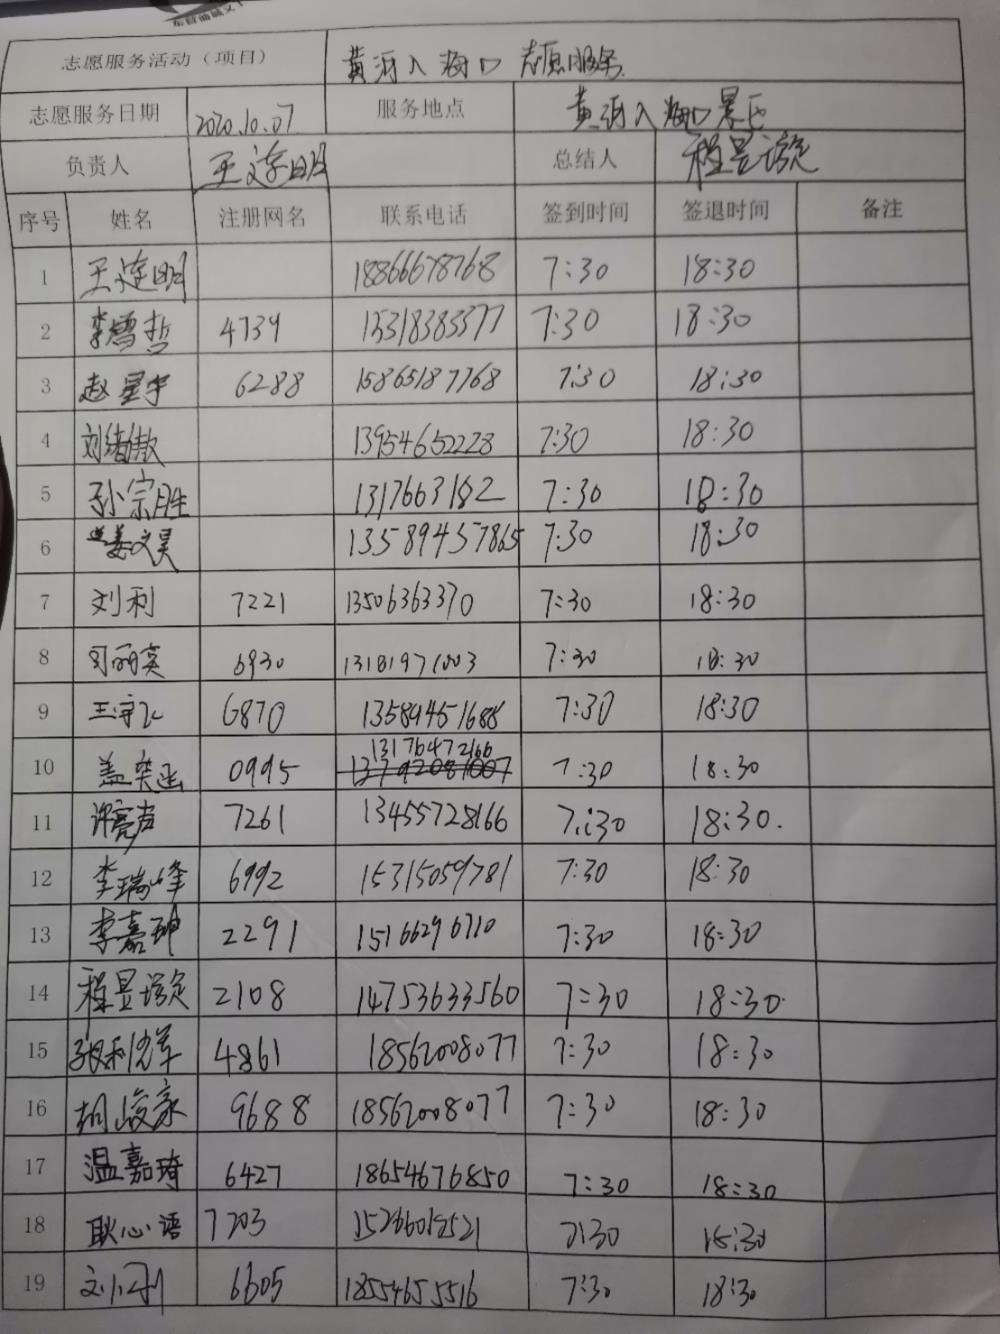 志愿服务活动（项目） 黄河入海口 志愿服务
志愿服务日期 2020.10.07 服务地点 黄河入海口景区
负责人 总结人
序号 姓名 注册网名 联系电话 签到时间 签退时间 备注
1 18866678768 7:30 18:30
2 李雪哲 4739 15318383377 7:30 18:30
3 赵星宇 6288 15865187768 7:30 18:30
4 13954652228 7:30 18:30
5 孙宗胜 7:30 18:30
6 姜文昊 135894457865 7:30 18:30
7 刘利 7221 13506363370 7:30 18:30
8 6930 13181971003 7:30 18:30
9 6870 13589451688 7:30 18:30
10 盖奕函 0995 13176472166 7:30 18:30
11 许亮声 7261 13455728166 7:30 18:30.
12 李瑞峰 6992 15315059781 7:30 18:30
13 李嘉珅 2291 15166296710 7:30 18:30
14 2108 14753633560 7:30 18:30
15 4861 18562008077 7:30 18:30
16 胡峻豪 9688 18562008077 7:30 18:30
17 温嘉琦 6427 18654676850 7:30 18:30
18 耿心语 7203 7:30
19 6605 18554655516 7:30 18:30